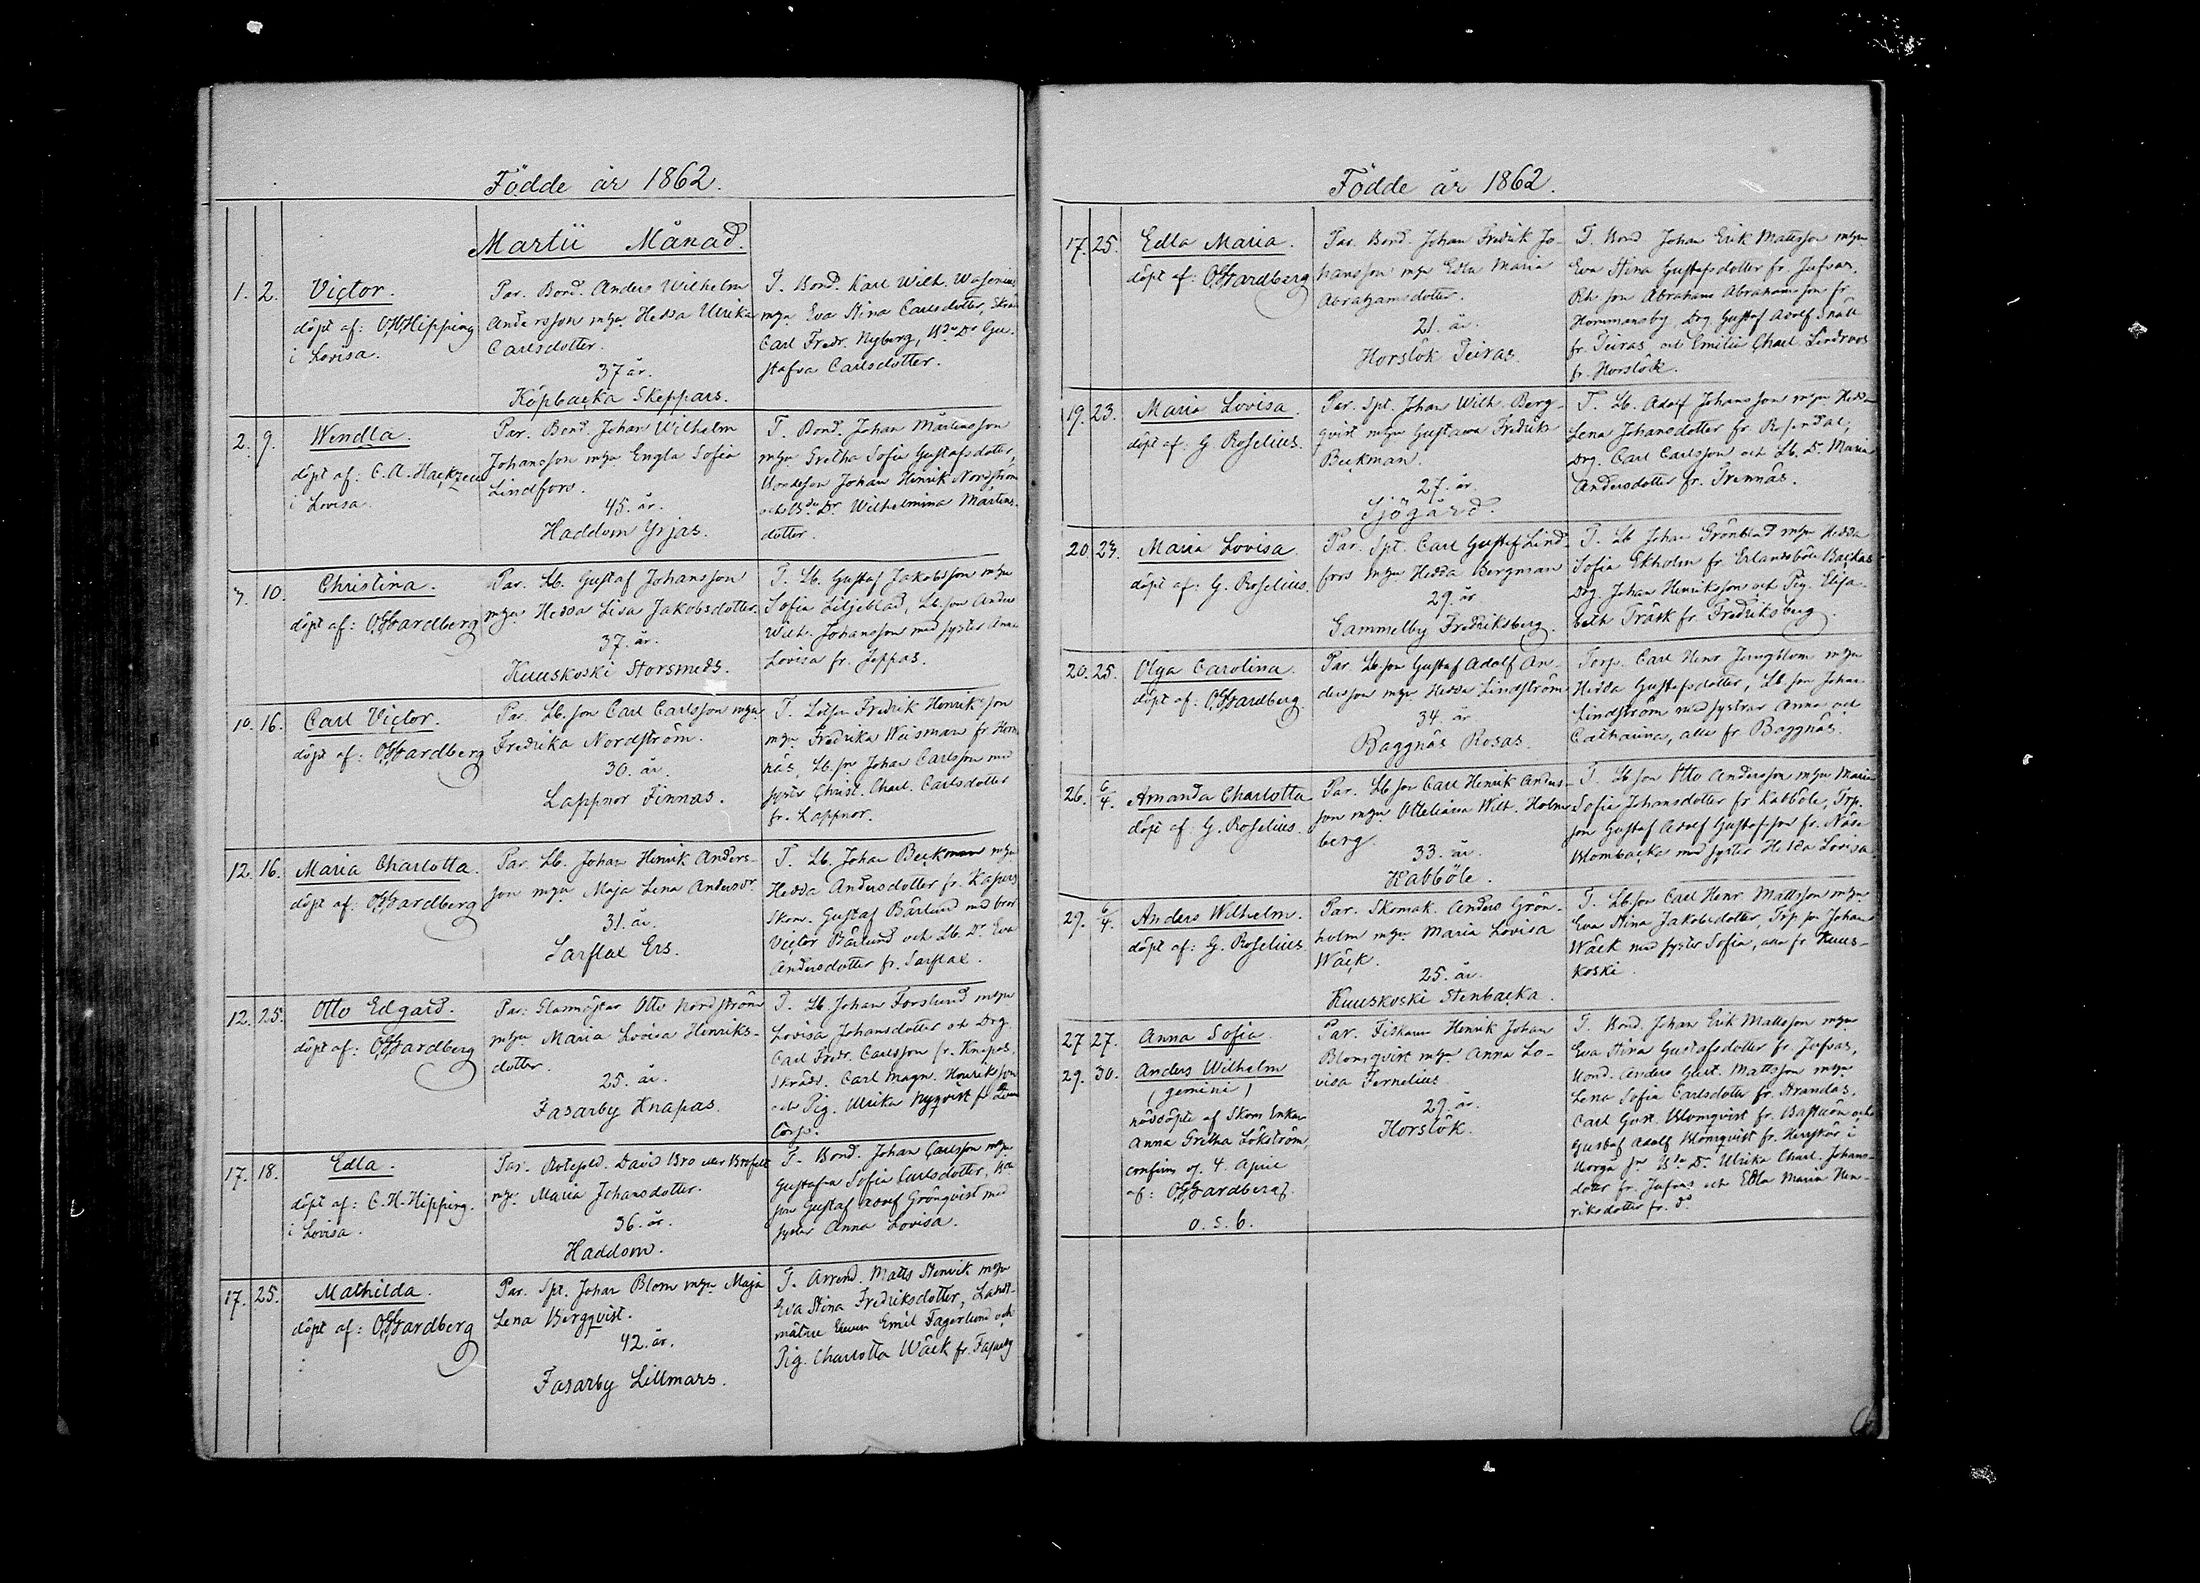 Födde år 1862.
Martii Månad.
1. 2. Victor.
döpt af: OHHipping
i Lovisa.
Par. Bond. Anders Wilhelm
Andersson m hu Hedda Ulrika
Carlsdotter.
37 år.
Köpbacka Skeppars.
T. Bond. Karl Wilh. Wasenius
m hu Eva Stina Carlsdotter,
Carl Fredr. Nyberg, Bde Dr Gu-
stafva Carlsdotter.
2. 9. Wendla.
döpt af: C. A. Hackzell
i Lovisa.
Par. Bond. Johan Wilhelm
Johansson m hu Engla Sofia
Lindfors.
45. år.
Haddom Yrjas.
T. Bond. Johan Mårtensson
m hu Gretha Sofia Gustafsdotter,
Bondeson Johan Henrik Nordström
och Bde Dr Wilhelmina Mårtens-
dotter.
7. 10. Christina.
döpt af: OGardberg
Par. Lb. Gustaf Johansson
m hu Hedda Lisa Jakobsdotter.
37. år.
Kuuskoski Storsmeds.
T. Lb. Gustaf Jakobsson m hu
Sofia Liljeblad, Lb. son Anders
Wilh. Johansson med syster Anna
Lovisa fr. Joppas.
10. 16. Carl Victor.
döpt af: OGardberg
Par. Lb. son Carl Carlsson m hu
Fredrika Nordström.
30. år.
Lappnor Finnas.
T. Lotsen Fredrik Henriksson
m hu Fredrika Weisman fr Horn-
näs, Lb. sn Johan Carlsson med
syster Christ. Charl. Carlsdotter
fr. Lappnor.
12. 16. Maria Charlotta.
döpt af: OGardberg
Par. Lb. Johan Henrik Anders-
son m hu Maja Lena Andersdr.
31. år.
Sarflax Ers.
T. Lb. Johan Beckman m hu
Hedda Andersdotter fr. Kapurs
Skom. Gustaf Bärlund med bror
Victor Bärlund och Lb. Dr Eva
Andersdotter fr. Sarflax.
12. 25. Otto Edgard.
döpt af: OGardberg
Par. Glasmästar Otto Nordström
m hu Maria Lovisa Henriks-
dotter.
25. år.
Fasarby Knapas.
T. Lb. Johan Forslund m hu
Lovisa Johansdotter och Drg
Carl Fredr. Carlsson fr. Knapas,
Skräd. Carl Magn. Henriksson
och Pig. Ulrika Nyqvist fr
torp.
17. 18. Edla.
döpt af: C. H. Hipping.
i Lovisa.
Par. Rotesold. David Bro eller Brofelt
m hu Maria Johansdotter.
36. år.
Haddom.
T. Bond. Johan Carlsson m hu
Gustafva Sofia Carlsdotter, Bde
son Gustaf Adolf Grönqvist med
syster Anna Lovisa.
17. 25. Mathilda.
döpt af: OGardberg
Par. Spt. Johan Blom m hu Maja
Lena Bergqvist.
42. år.
Fasarby Lillmars.
T. Arrend. Matts Stenvik m hu
Eva Stina Fredriksdotter, Landt-
mätare Eleven Emil Fagerlund och
Pig. Charlotta Wäck fr. Fasarby
Födde år 1862.
17. 25. Edla Maria.
döpt af: OGardberg
Par. Bond. Johan Fredrik Jo-
hansson m hu Edla Maria
Abrahamsdotter.
21. år.
Horslök Teiras.
T. Bond Johan Erik Mattsson m hu
Eva Stina Gustafsdotter fr. Jufvas,
Rh. son Abraham Abrahamsson fr.
Hommansby, Drg Gustaf Adolf Snäll
fr. Teiras och Emilii Charl. Lindroos
fr. Horslök.
19. 23. Maria Lovisa.
döpt af: G. Roselius.
Par. Spt. Johan Wilh. Berg-
qvist m hu Gustava Fredrik
Beckman.
27. år.
Sjögård.
T. Lb. Adolf Johansson m hu Hedda
Lena Johansdotter fr. Rosendal,
Drg. Carl Carlsson och Lb. Dr Maria
Andersdotter fr. Trennäs.
20 23. Maria Lovisa.
döpt af: G. Roselius.
Par. Spt. Carl Gustaf Lind-
fors m hu Hedda Bergman
29. år
Gammelby Fredriksberg.
T. Lb Johan Grönblad m hu Hedda
Sofia Ekholm fr. Erlandsböle Backas
Drg. Johan Henriksson och Pig. Elisa-
beth Träsk fr. Fredriksberg.
20. 25. Olga Carolina.
döpt af: OGardberg.
Par. Lb son Gustaf Adolf An-
dersson m hu Hedda Lindström
34. år
Baggnäs Rosas.
Torp. Carl Henr. Ljungblom m hu
Hedda Gustafsdotter, Lb. son Johan
Lindström med systrar Anna och
Catharina, alla fr Baggnäs.
26. 6/4. Amanda Charlotta
döpt af: G. Roselius.
Par. Lb son Carl Henrik Anders-
son m hu Otteliana Wilh. Holm-
berg.
33. år.
Kabböle.
T. Lb son Otto Andersson m hu Maria
Sofia Johansdotter fr Kabböle, Trp.
son Gustaf Adolf Gustafsson fr. Näse
Blombacka med syster Hedda Lovisa
29. 6/4. Anders Wilhelm.
döpt af: G. Roselius
Par. Skomak. Anders Grön-
holm m hu Maria Lovisa
Wäck.
25. år.
Kuuskoski Stenbacka.
T. Lb son Carl Henr. Mattsson m hu
Eva Stina Jakobsdotter, Trp. son Johan
Wäck med syster Sofia, alla fr. Kuus-
koski.
27 27. Anna Sofia.
29. 30. Anders Wilhelm
(gemini)
nöddöpte af Skom Enkan
Anna Gretha Lökström,
confirm. af. 4. April
af: OGardberg.
o. s. b.
Par. Fiskaren Henrik Johan
Blomqvist m hu Anna Lo-
visa Fernelius.
29. år.
Horslök.
T. Bond. Johan Erik Mattsson m hu
Eva Stina Gustafsdotter fr. Jufvas,
Bond. Anders Gust. Mattsson m hu
Lena Sofia Carlsdotter fr. Strandas,
Carl Gust. Blomqvist fr. Bastuön och
Gustaf Adolf Blomqvist fr. Herrskär i
Borgå sn Bde Dr Ulrika Charl. Johans-
dotter fr. Jufvas och Edla Maria Hen-
riksdotter fr. do